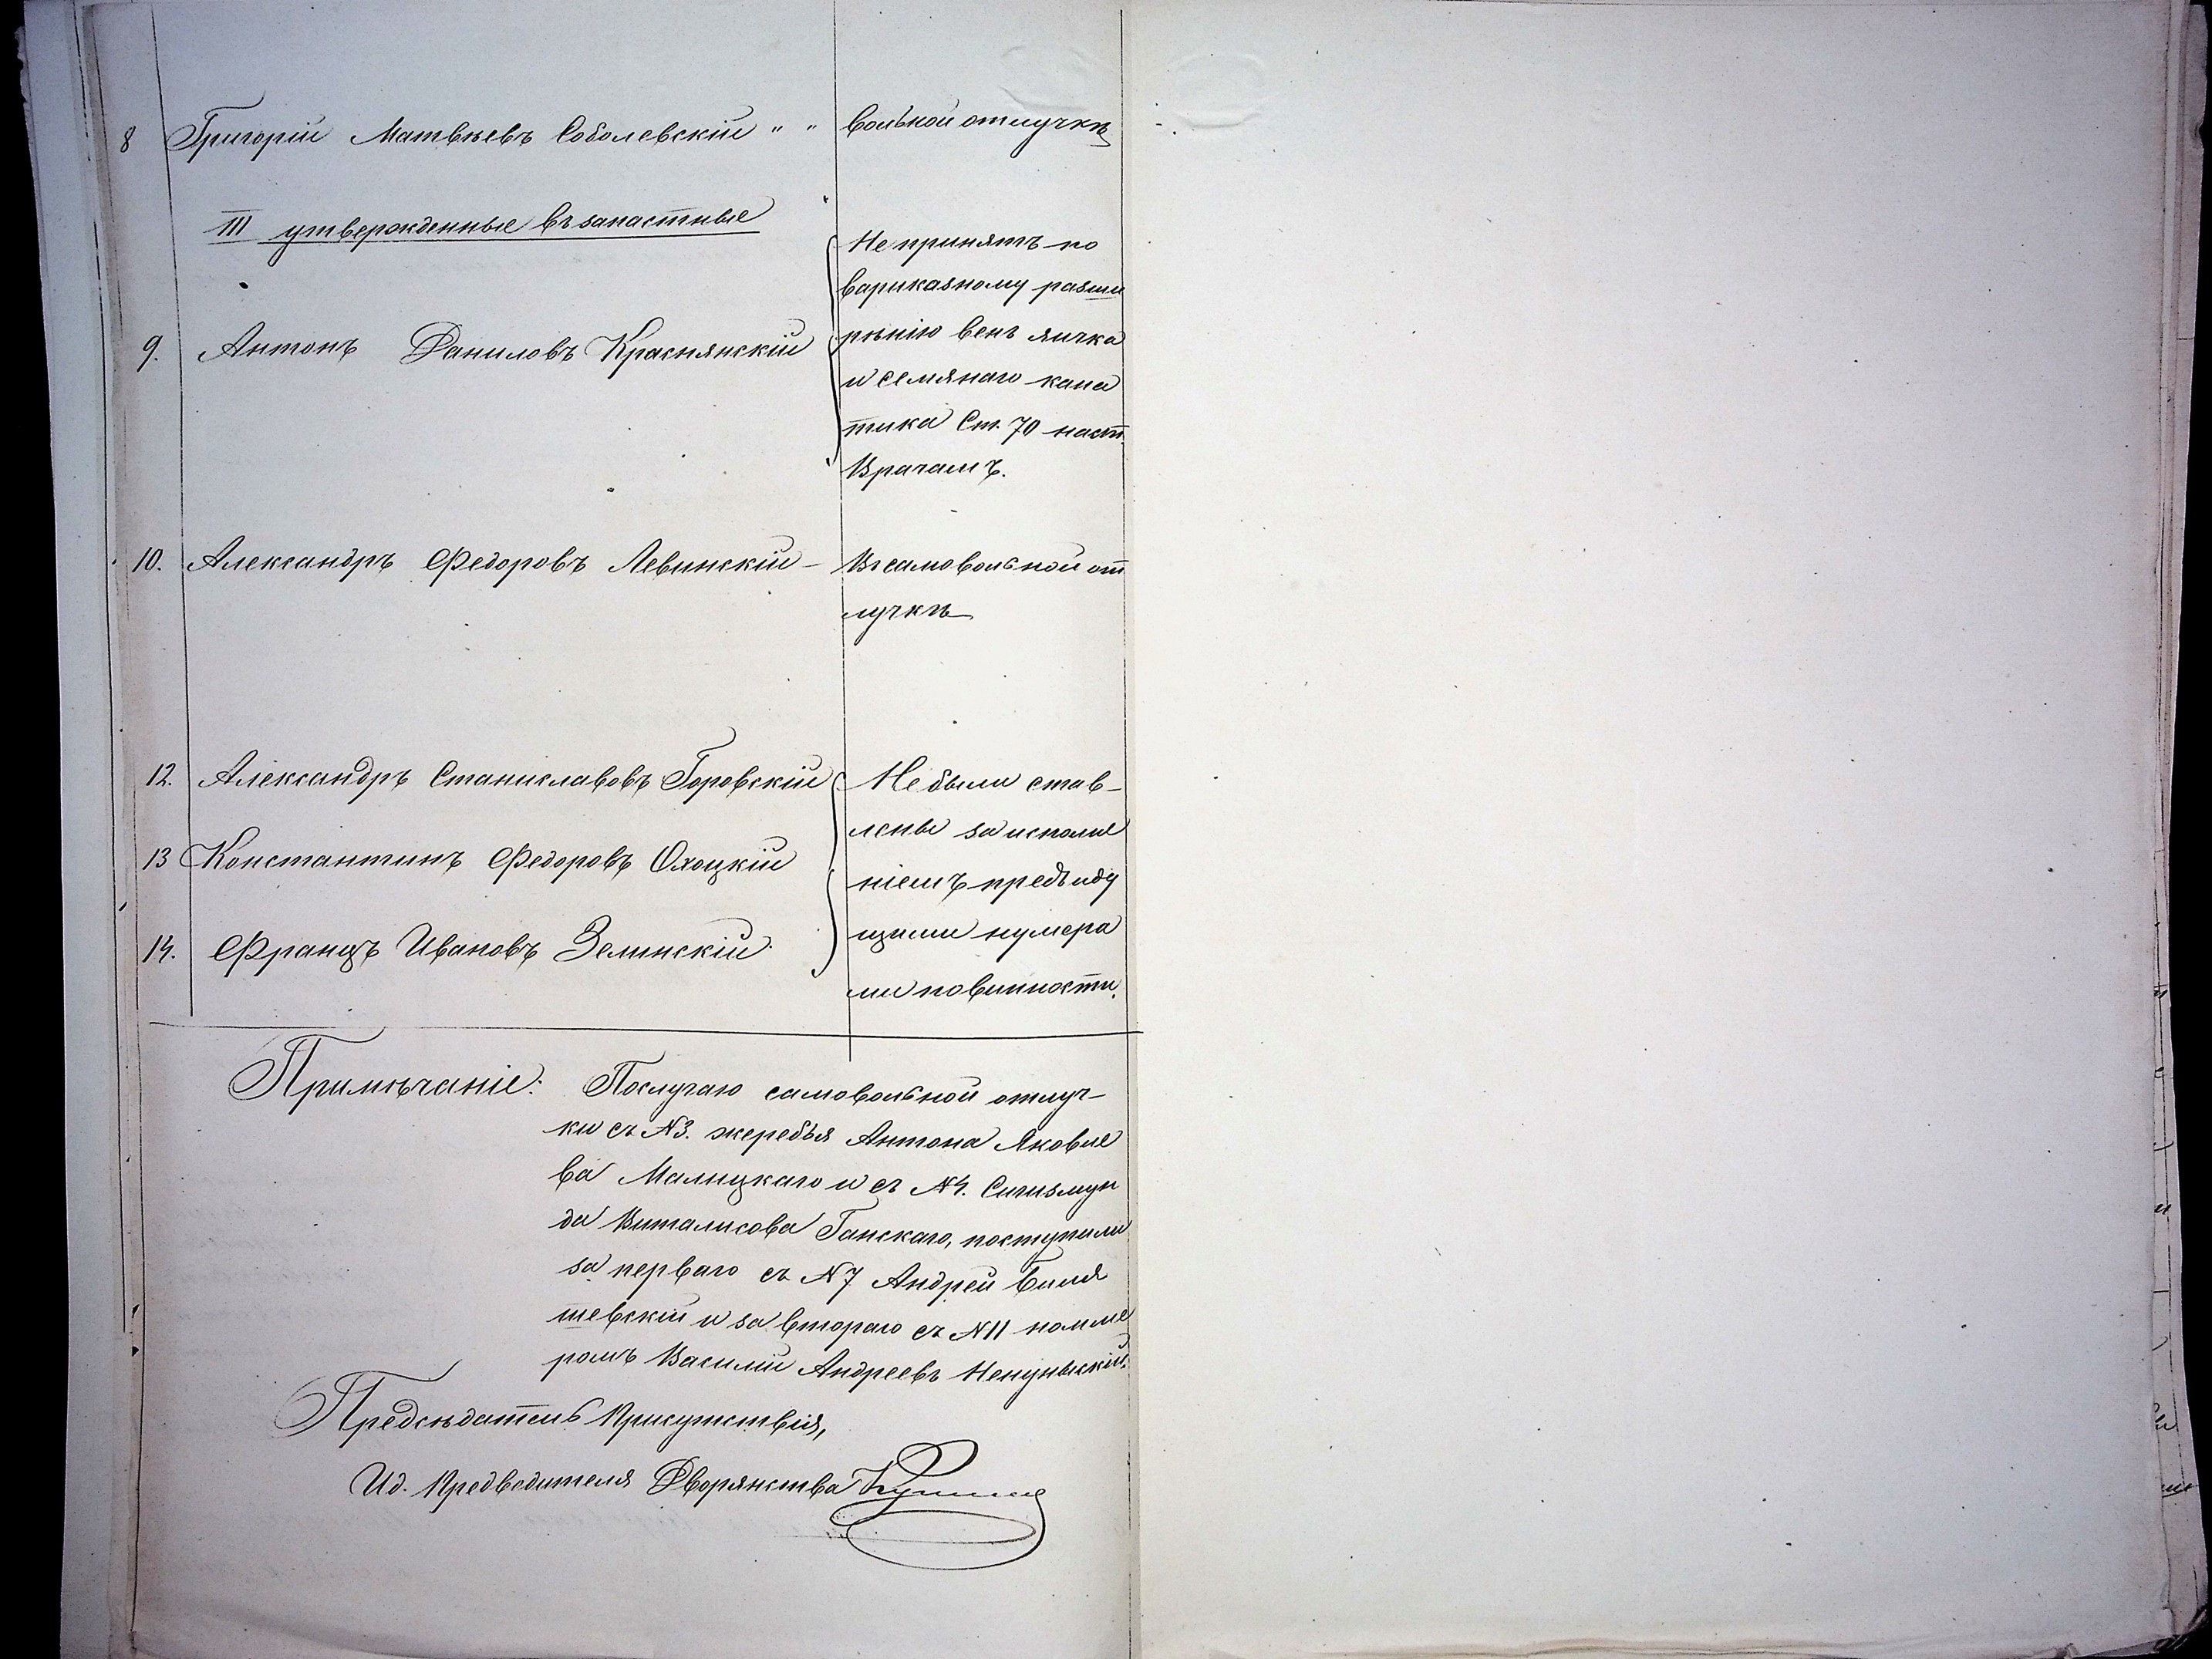 8 Григорій Матвѣевъ Соболевскій " " вольной отлучкѣ
III утвержденные въ запастные
9. Антонъ Даниловъ Краснянскій
Не принятъ по
вариказному разши
рѣнію венъ яичка
и семянаго кана
тика Ст. 70 наст.
Врачамъ.
10. Александръ Федоровъ Левинскій – Въ самовольной от
лучкѣ
12. Александръ Станиславовъ Горовскій
13 Константинъ Федоровъ Охоцкій
14. Францъ Ивановъ Зелинскій
Не были став-
лены за исполне
ніемъ предъиду
щими нумера
ми повинности.
Примѣчаніе: По случаю самовольной отлуч-
ки съ №3. жеребья Антона Яковле
ва Малицкаго и съ №4. Сигизмун
да Виталисова Ганскаго, поступили
за перваго съ №7 Андрей Биля
шевскій и за втораго съ №11 номме
ромъ Василій Андреевъ
Предсѣдатель Присутствія,
Ид. Предводителя Дворянства